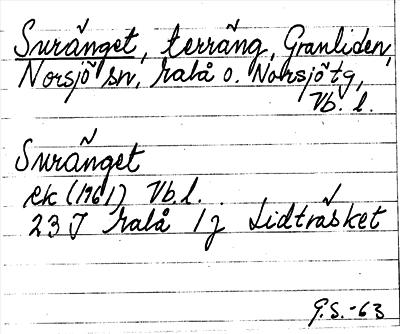 Suränget, terräng, Granliden,
Norsjö sn, Malå o. Norsjö tg,
Vb. l.
Suränget
ek (1961) Vb.l.
23 J Malå 1j Lidträsket
G.S.-63